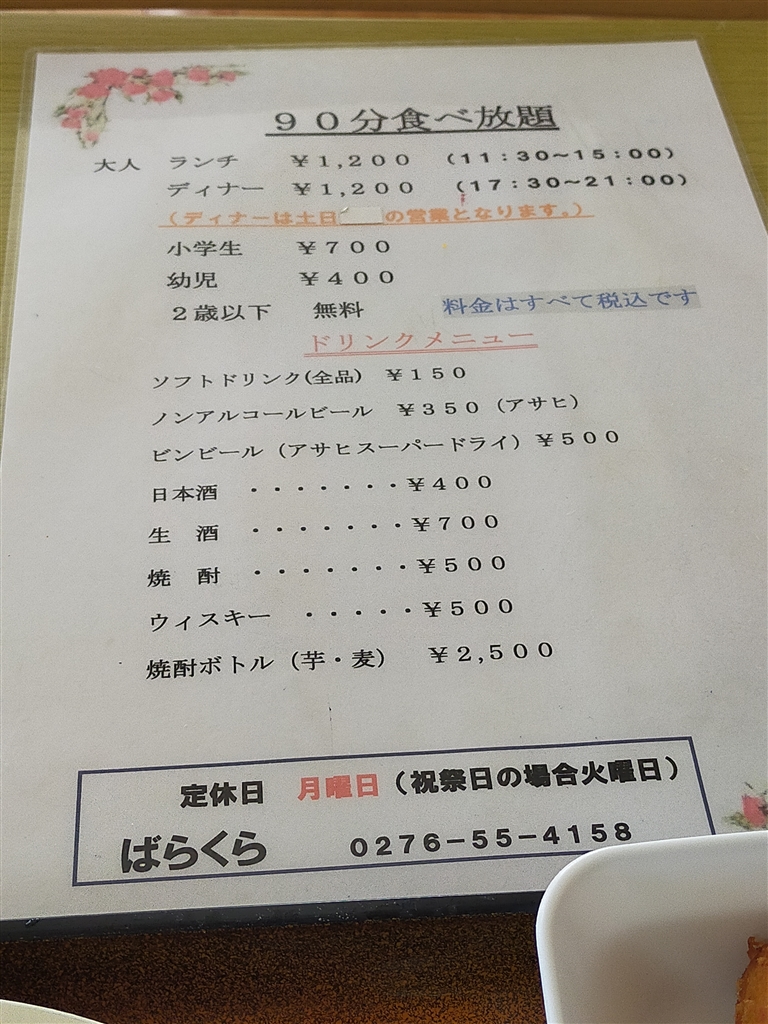 ９０分食べ放題
大人　ランチ　￥１,２００　（１１：３０～１５：００）
ディナー　￥１,２００　（１７：３０～２１：００）
（ディナーは土日　の営業となります。）
小学生　￥７００
幼児　￥４００
２歳以下　無料　料金はすべて税込です
ドリンクメニュー
ソフトドリンク(全品)　￥１５０
ノンアルコールビール　￥３５０（アサヒ）
ビンビール（アサヒスーパードライ）￥５００
日本酒　・・・・・・・￥４００
生　酒　・・・・・・・￥７００
焼　酎　・・・・・・・￥５００
ウィスキー　・・・・・￥５００
焼酎ボトル（芋・麦）　￥２,５００
定休日　月曜日（祝祭日の場合火曜日）
ばらくら　０２７６－５５－４１５８